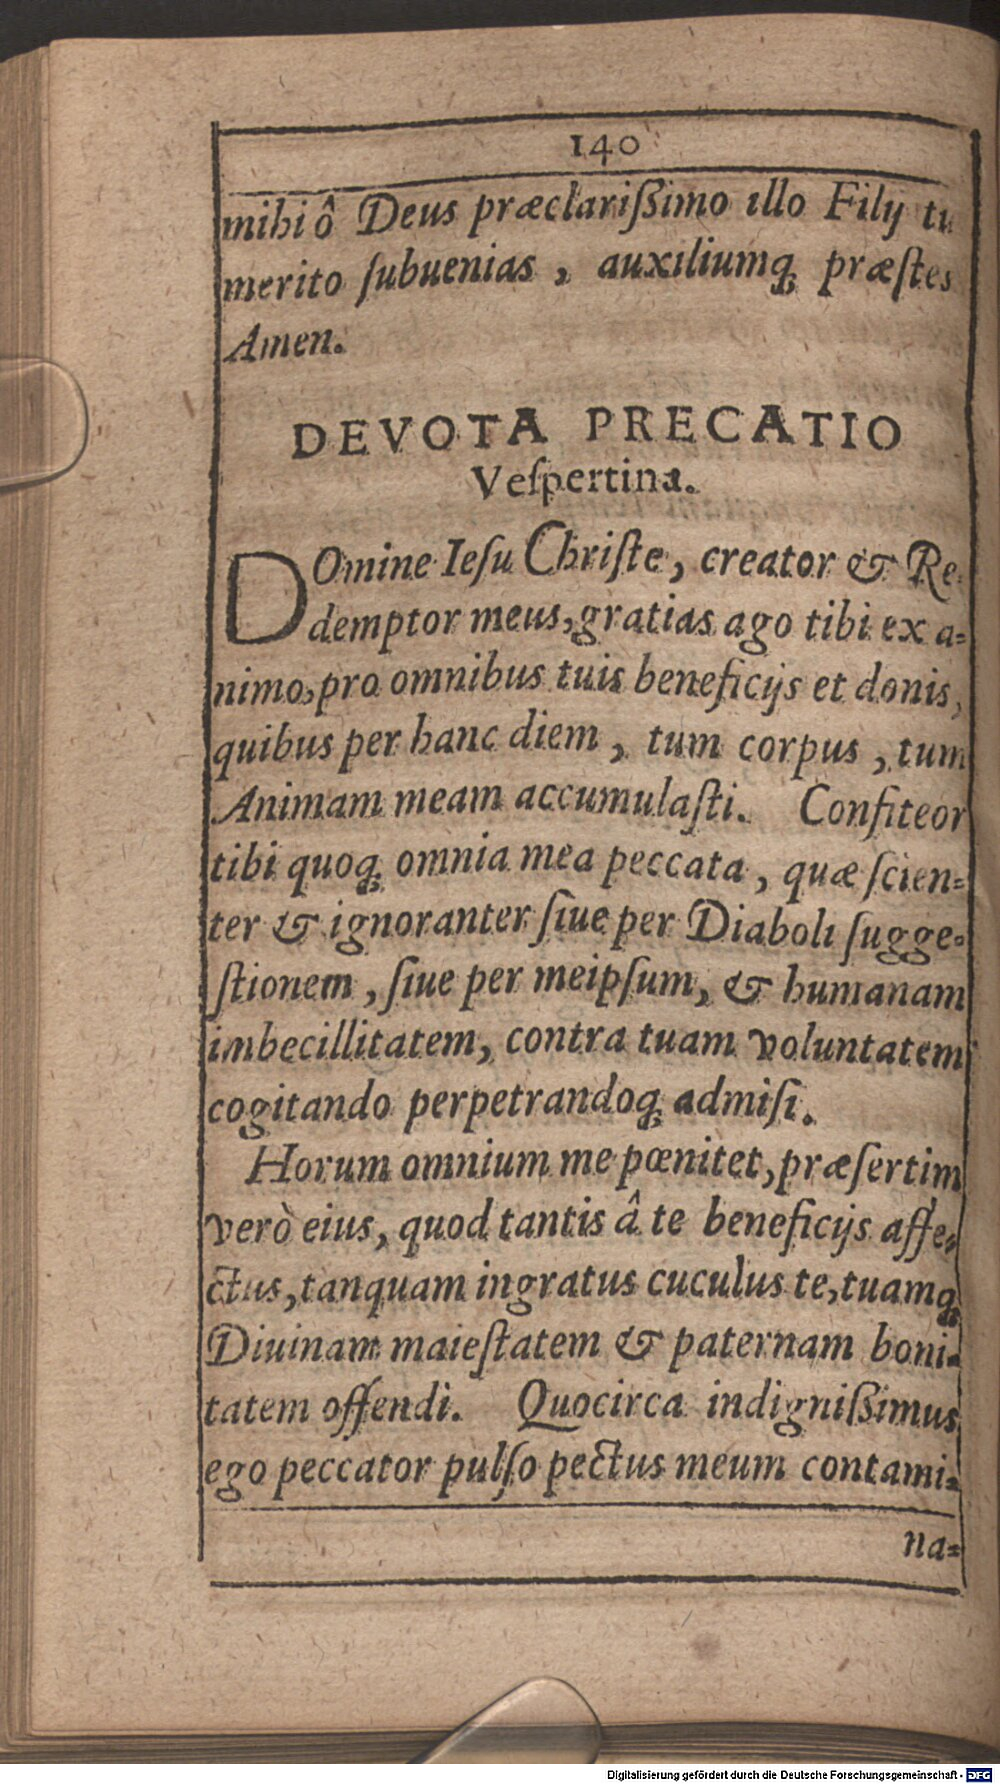 140
mihi ô Deus præclariſſimo illo Filij tu
merito ſubuenias, auxiliumq́; præſtes
Amen.
DEVOTA PRECATIO
Veſpertina.
DOmine Ieſu Chriſte, creator & Re-
demptor meus, gratias ago tibi ex a-
nimo, pro omnibus tuis beneficijs et donis,
quibus per hanc diem, tum corpus, tum
Animam meam accumulaſti. Confiteor
tibi quoq; omnia mea peccata, quæ ſcien-
ter & ignoranter ſiue per Diaboli ſugge-
ſtionem, ſiue per meipſum, & humanam
imbecillitatem, contra tuam voluntatem
cogitando perpetrandoq; admiſi.
Horum omnium me pœnitet, præſertim
verò eius, quod tantis â te beneficijs affe-
ctus, tanquam ingratus cuculus te, tuamq;
Diuinam maieſtatem & paternam boni-
tatem offendi. Quocirca indigniſſimus
ego peccator pulſo pectus meum contami-
na-
Digitalisierung gefördert durch die Deutsche Forschungsgemeinschaft - DFG